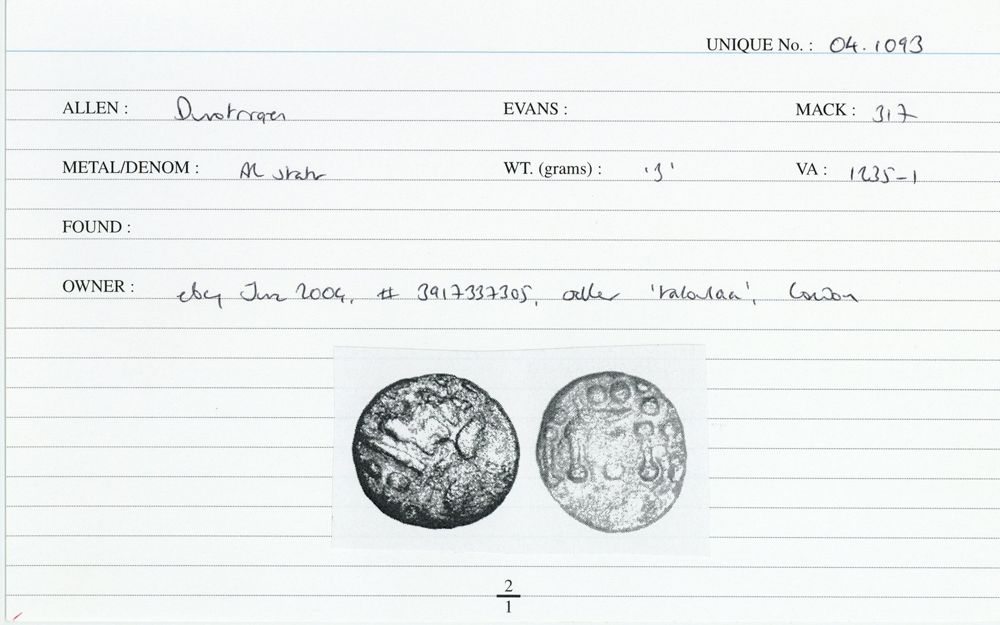 UNIQUE No. : 04.1093
ALLEN : Durotrigan EVANS : MACK : 317
METAL/DENOM : AR stater WT. (grams) : '3' VA : 1235-1
FOUND :
OWNER : ebay June 2004, # 3917337305, seller London
2
1